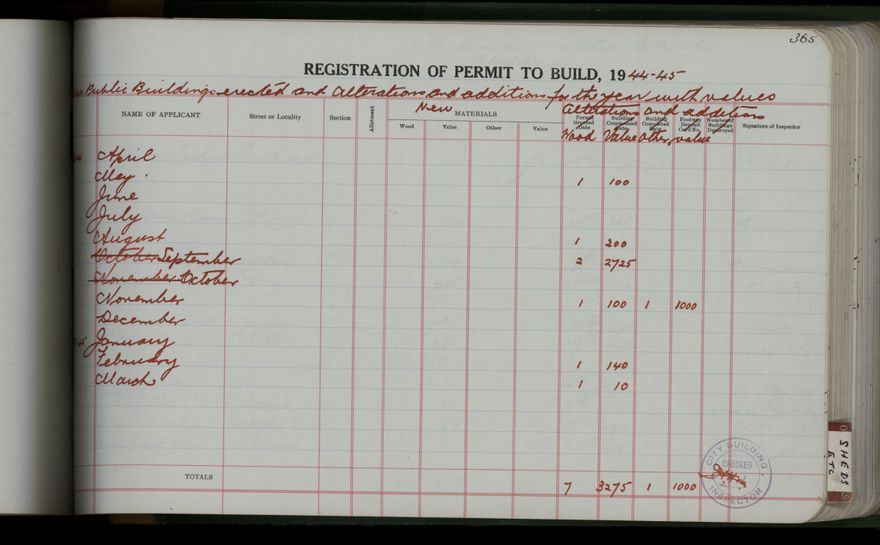 365
REGISTRATION OF PERMIT TO BUILD, 1944-45
Public Buildings erected and Alterations and additions for the year with values
New Alterations and additions
NAME OF APPLICANT Street or Locality Section Allotment MATERIALS Permit Granted Date Building Commenced Date Building Completed Date Footway Deposit Card No. Numbered Buildings Destroyed Signature of Inspector
Wood Value Other Value Wood Value Other value
April
May 1 100
June
July
August 1 200
October September 2 2725
November October
November 1 100 1 1000
December
45 January
February 1 140
March 1 10
CITY BUILDING INSPECTOR
CHECKED
TOTALS 7 3275 1 1000
SHEDS
ETC